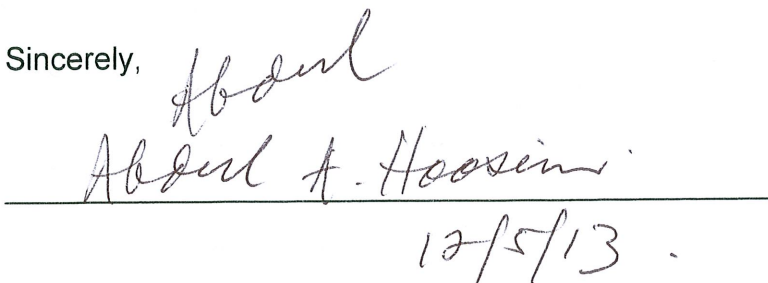 Sincerely,
Abdul
Abdul A. Hoosein
12/5/13.